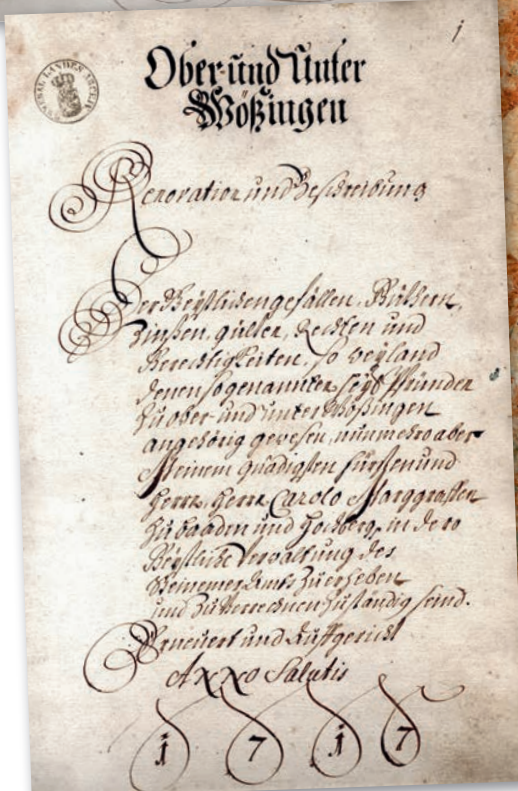 1
GENERAL LANDES ARCHIV
Ober- und Unter
Wößingen
Renovation und Beschreibung
Der Geystlichen gefällen, Güthern,
Zinßen, güllten, Rechten und
Gerechtigkeiten, so weyland
denen so genannten Pfründen
zu ober- und unter Wößingen
angehörig gewesen, nunmehro aber
Meinem Gnädigsten Fürsten und
Herrn, Herrn Carolo Marggraffen
zu Baaden und Hochberg, in dero
Geystliche Verwaltung des
Steinemer Ambts zu erheben
und zu Verrechnen zuständig seind.
Erneuert und Auffgericht
Anno Salutis
1717